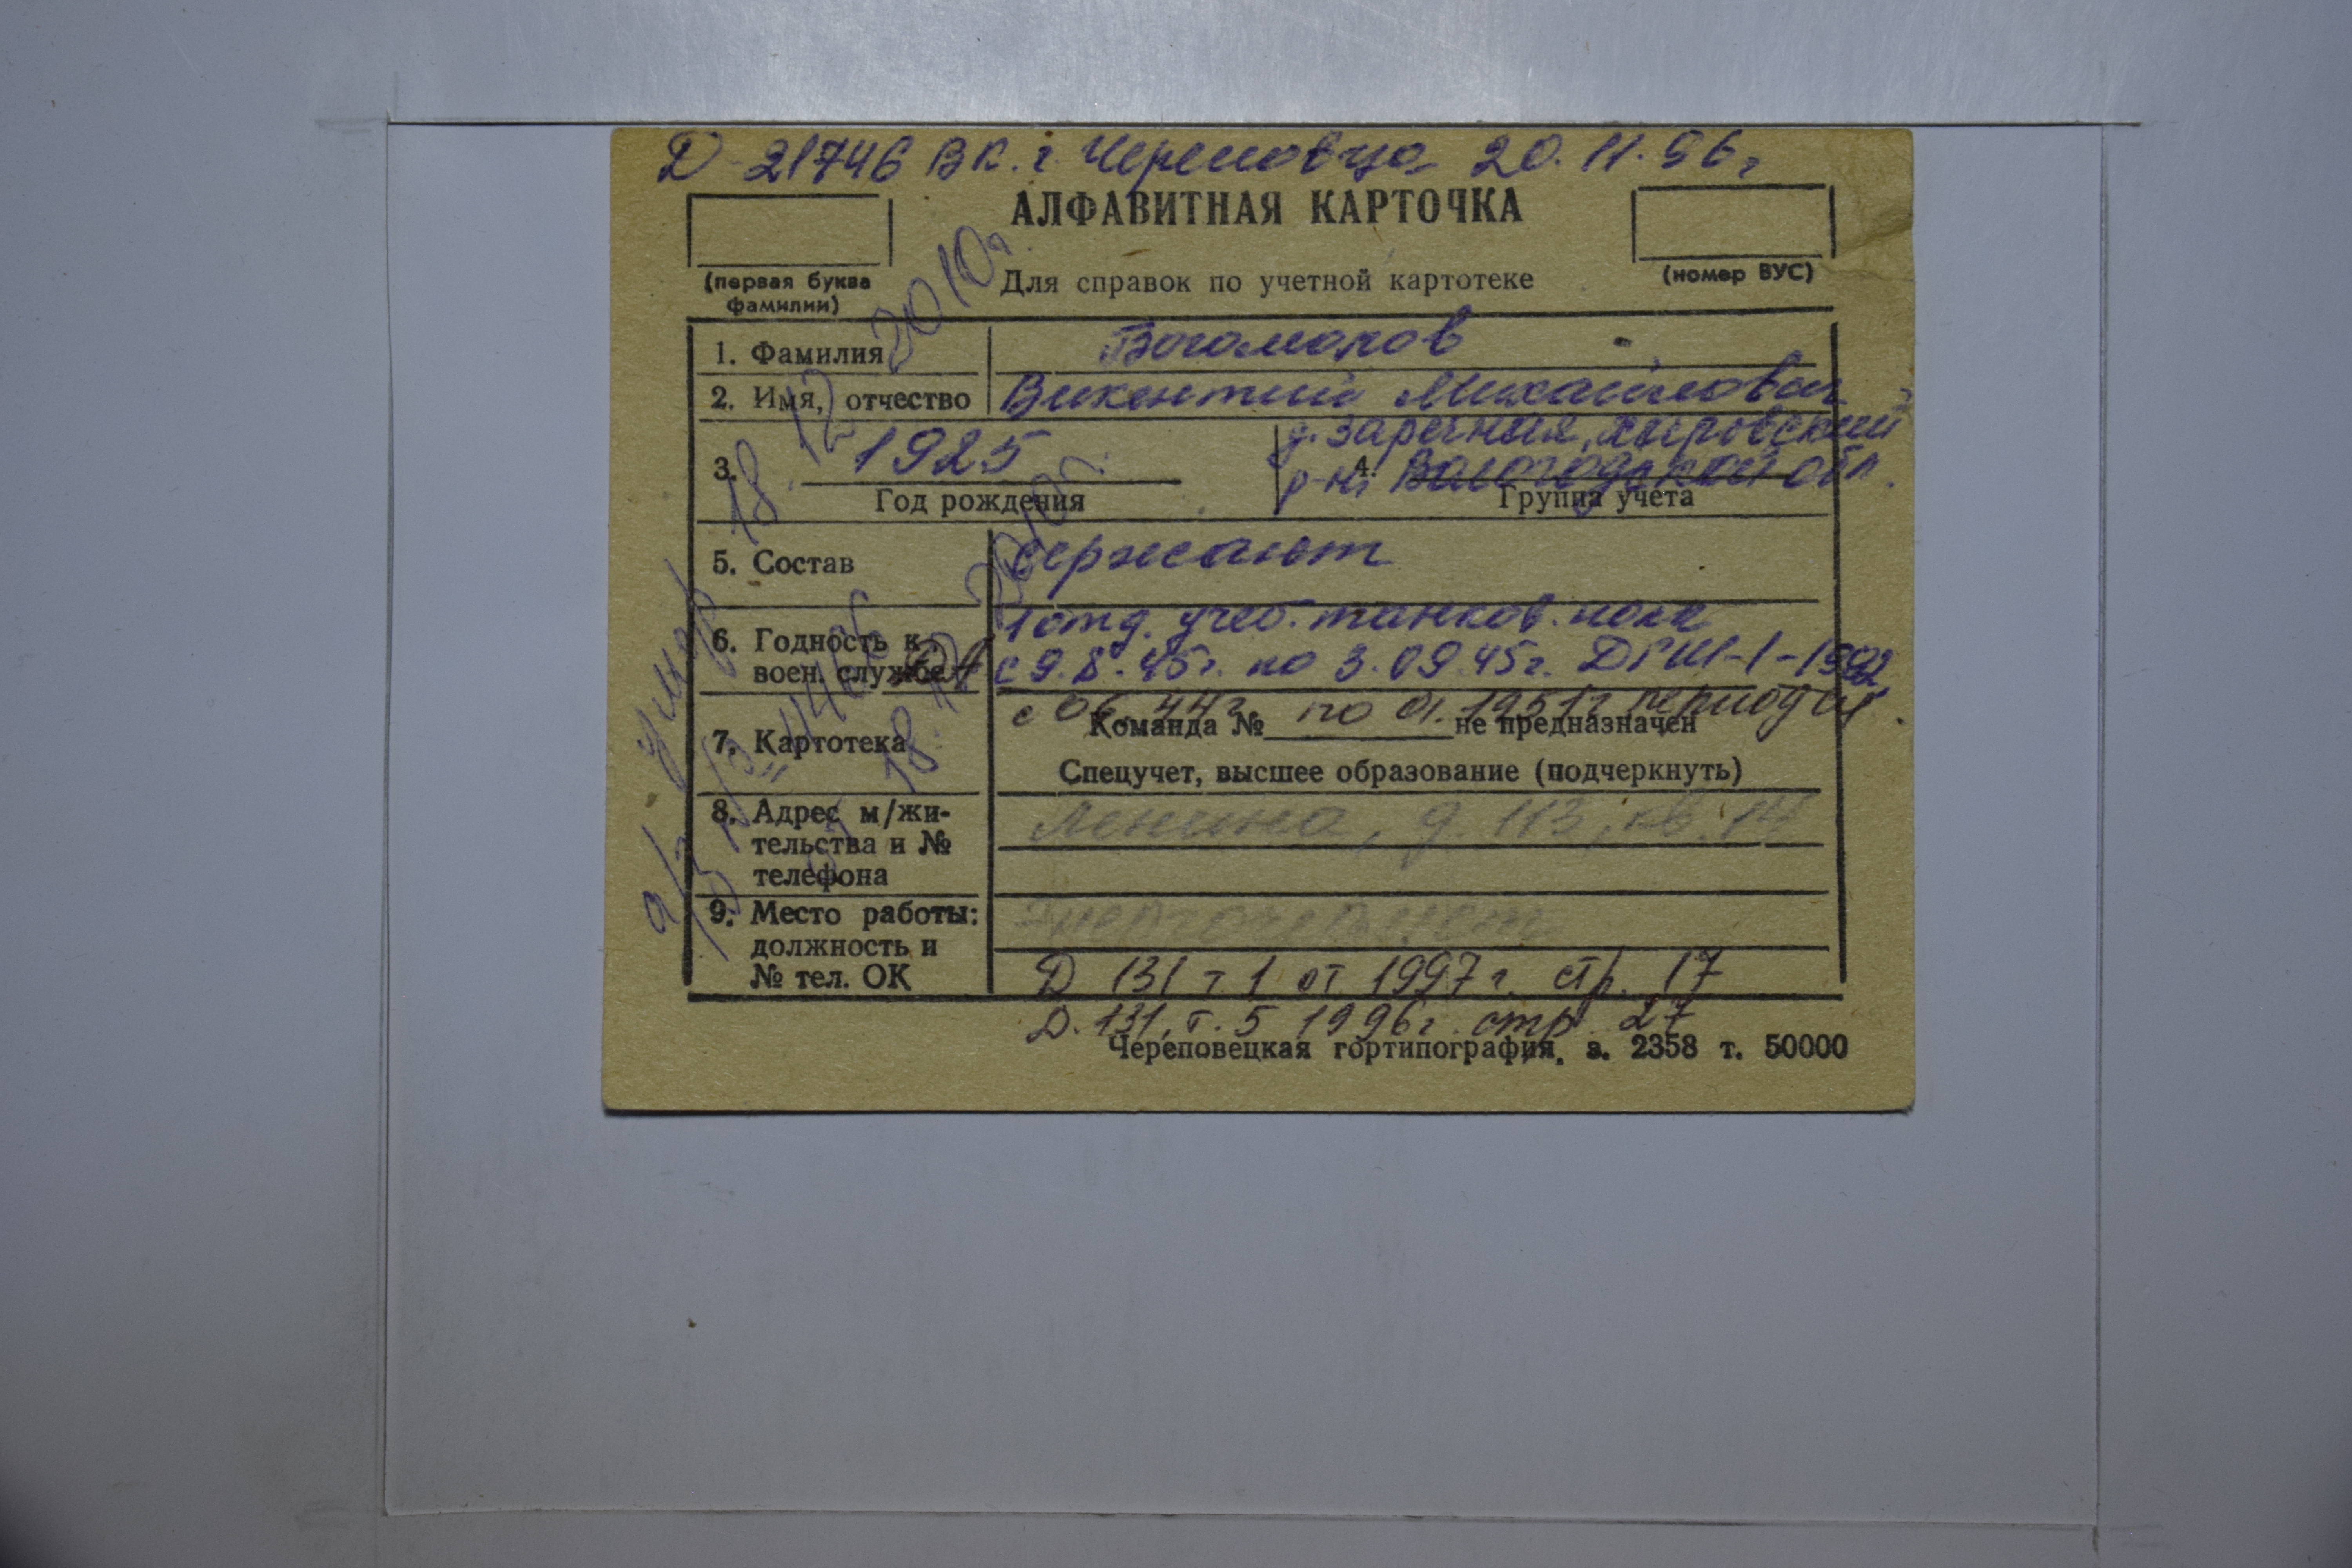 Д-21746 ВК. г. Череповца 20.11.96г
АЛФАВИТНАЯ КАРТОЧКА
(первая буква
фамилии)
Для справок по учетной картотеке
(номер ВУС)
1. Фамилия
Богомолов
2. Имя, отчество
Викентий Михайлович
3. 1925
Год рождения
д. Заречная,
р-н, Вологодской обл.
4.
Группа учета
5. Состав
сержант
6. Годность к
воен. службе
1 отд. учеб. танков. полк
с 9.8.45г. по 3.09.45г.
7. Картотека
с 06.44г по 01.1951г период
Команда № не предназначен
Спецучет, высшее образование (подчеркнуть)
8. Адрес м/жи-
тельства и №
телефона
Ленина, д. 113, кв. 14
9. Место работы:
должность и
№ тел. ОК
Д 131 т 1 от 1997 г. стр. 17
Д. 131, т. 5 1996г. стр. 27
Череповецкая гортипография. з. 2358 т. 50000
умер 18.12 2010г
18.12 2010г.